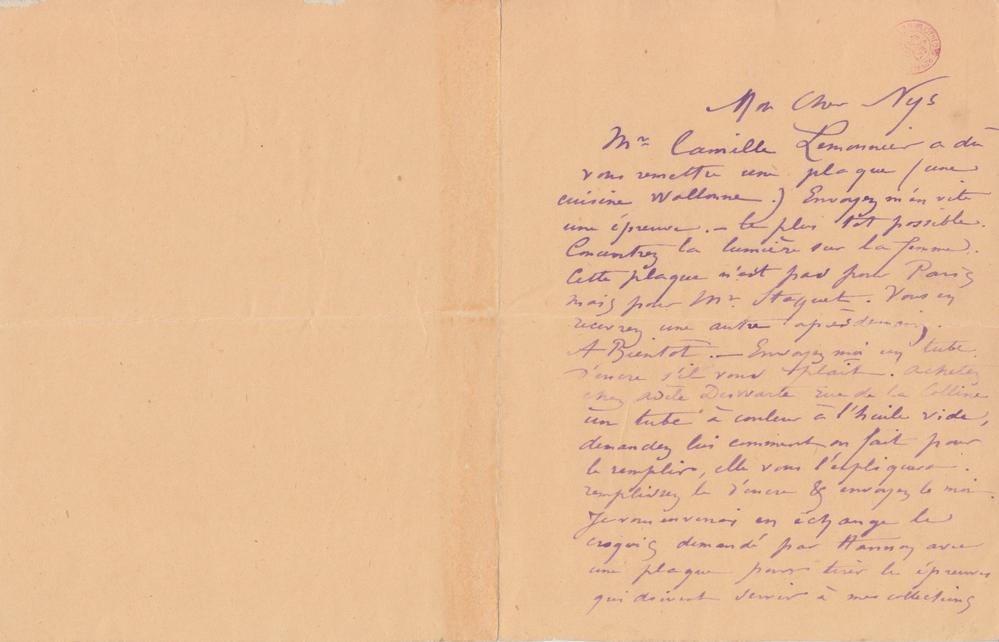 Mon Cher Nys
Mr Camille Lemonnier a dû
vous remettre une plaque (une
cuisine Wallonne.) Envoyez m'en vite
une épreuve. — le plus tôt possible.
Concentrez la lumière sur la femme.
Cette plaque n'est pas pour Paris
mais pour Mr. Staquet. Vous en
recevrez une autre après demain.
A Bientôt. — Envoyez moi un tube
d'encre s'il vous plaît. achetez
chez Adèle Deswarte Rue de la Colline
un tube à couleur à l'huile vide,
demandez lui comment on fait pour
le remplir, elle vous l'expliquera.
remplissez le d'encre & envoyez le moi.
Je vous enverrai en échange le
croquis demandé par Hannon avec
une plaque pour tirer le épreuves
qui doivent servir à mes collections